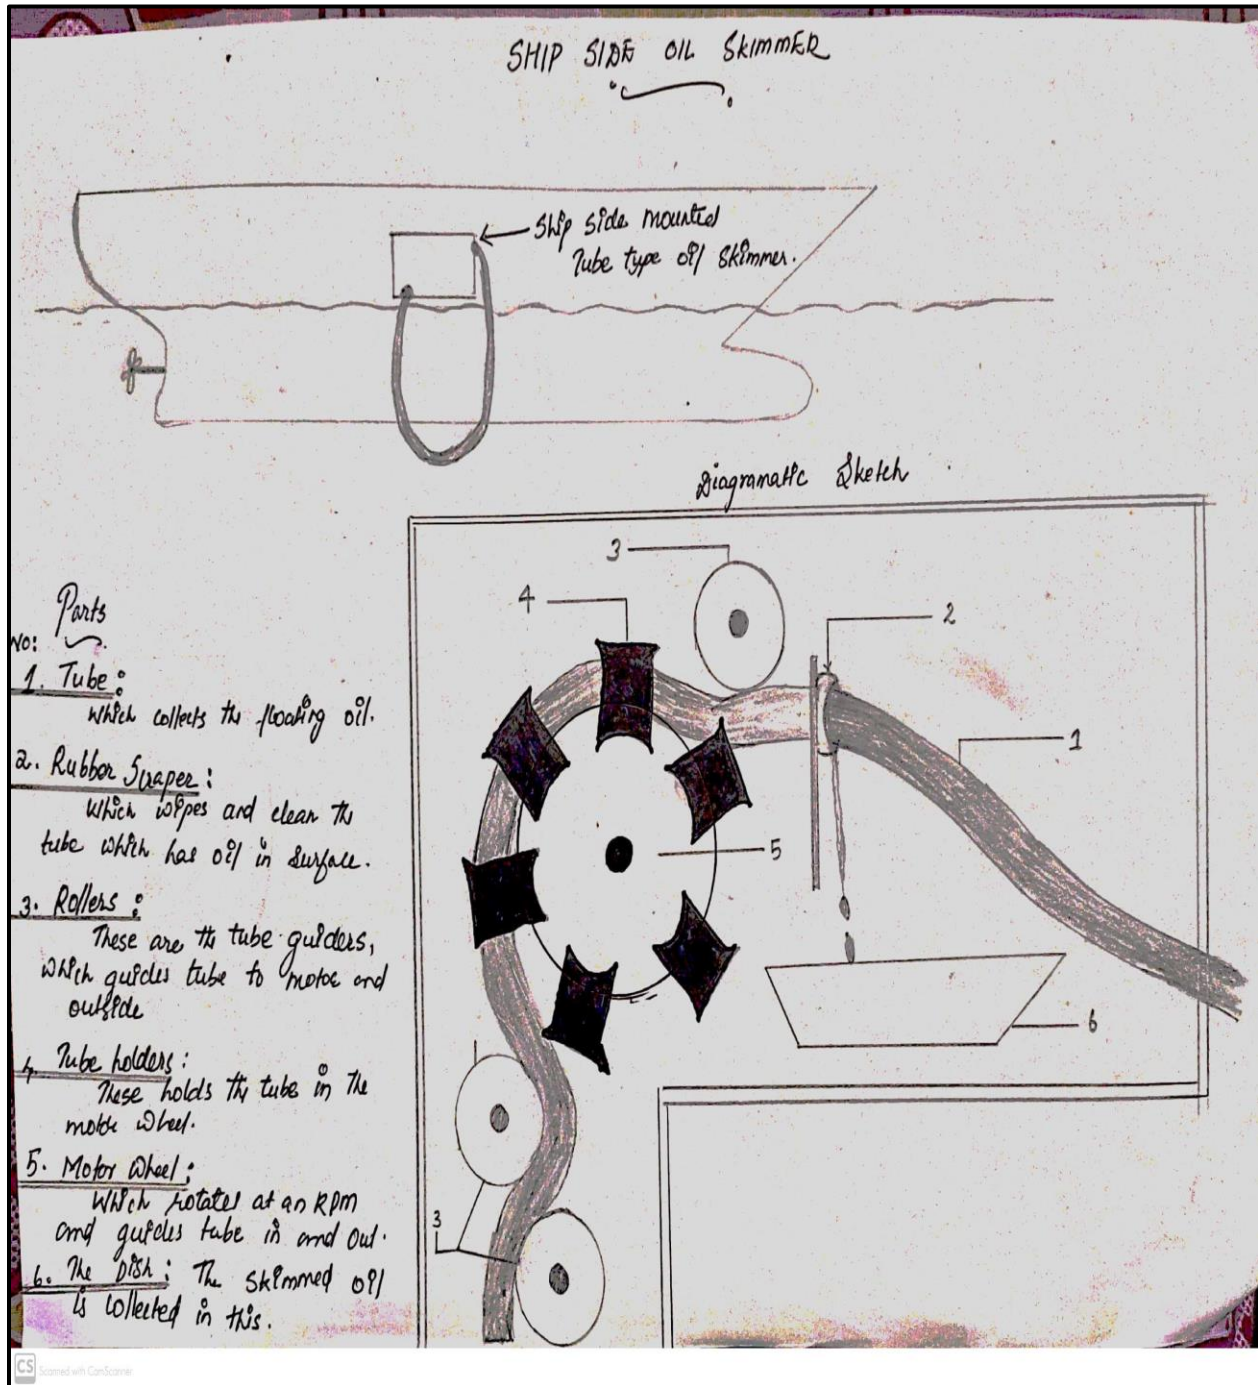 SHIP SIDE OIL SKIMMER
Ship side mounted
Tube type oil skimmer.
Diagramatic Sketch
3
4
2
1
5
6
3
Parts
NO:
1. Tube:
Which collects the floating oil.
2. Rubber Scraper:
Which wipes and clean the
tube which has oil in surface.
3. Rollers:
These are the tube guiders,
which guides tube to motor and
outside
4. Tube holders:
These holds the tube in the
motor wheel.
5. Motor wheel:
Which rotates at an RPM
and guides tube in and out.
6. The Dish: The skimmed oil
is collected in this.
CS Scanned with CamScanner